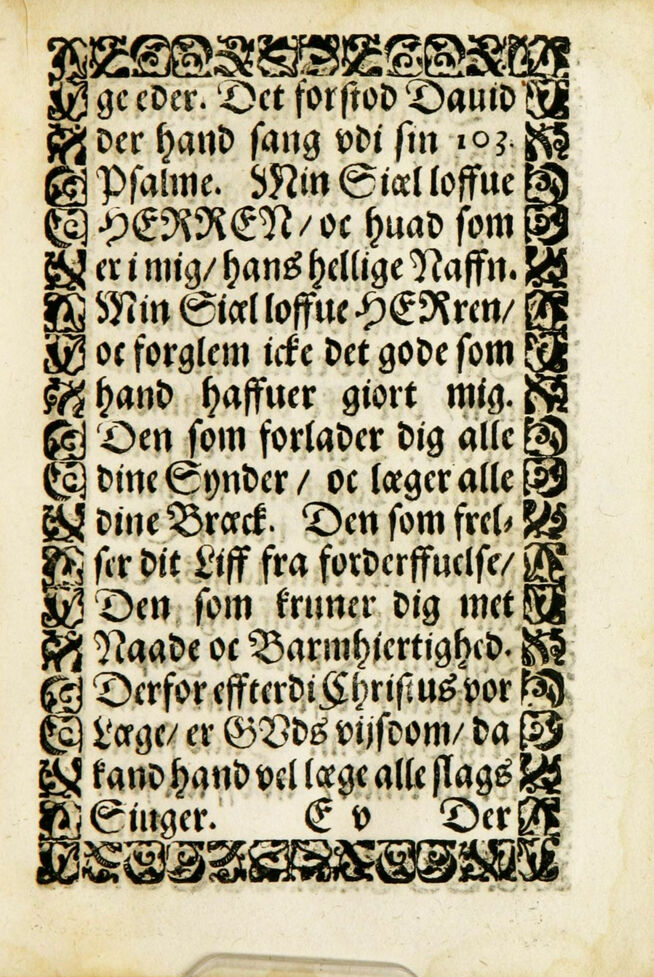 ge eder. Det forstod Dauid
der hand sang vdi sin 103.
Psalme. Min Siæl loffue
HERREN/ oc huad som
er i mig/ hans hellige Naffn.
Min Siæl loffue HERren/
oc forglem icke det gode som
hand haffuer giort mig.
Den som forlader dig alle
dine Synder / oc læger alle
dine Bræck. Den som frel-
ser dit Liff fra forderffuelse/
Den som kruner dig met
Naade oc Barmhiertighed.
Derfor effterdi Christus vor
Læge/ er GVds vijsdom/ da
kand hand vel læge alle slags
Siuger. E v Der